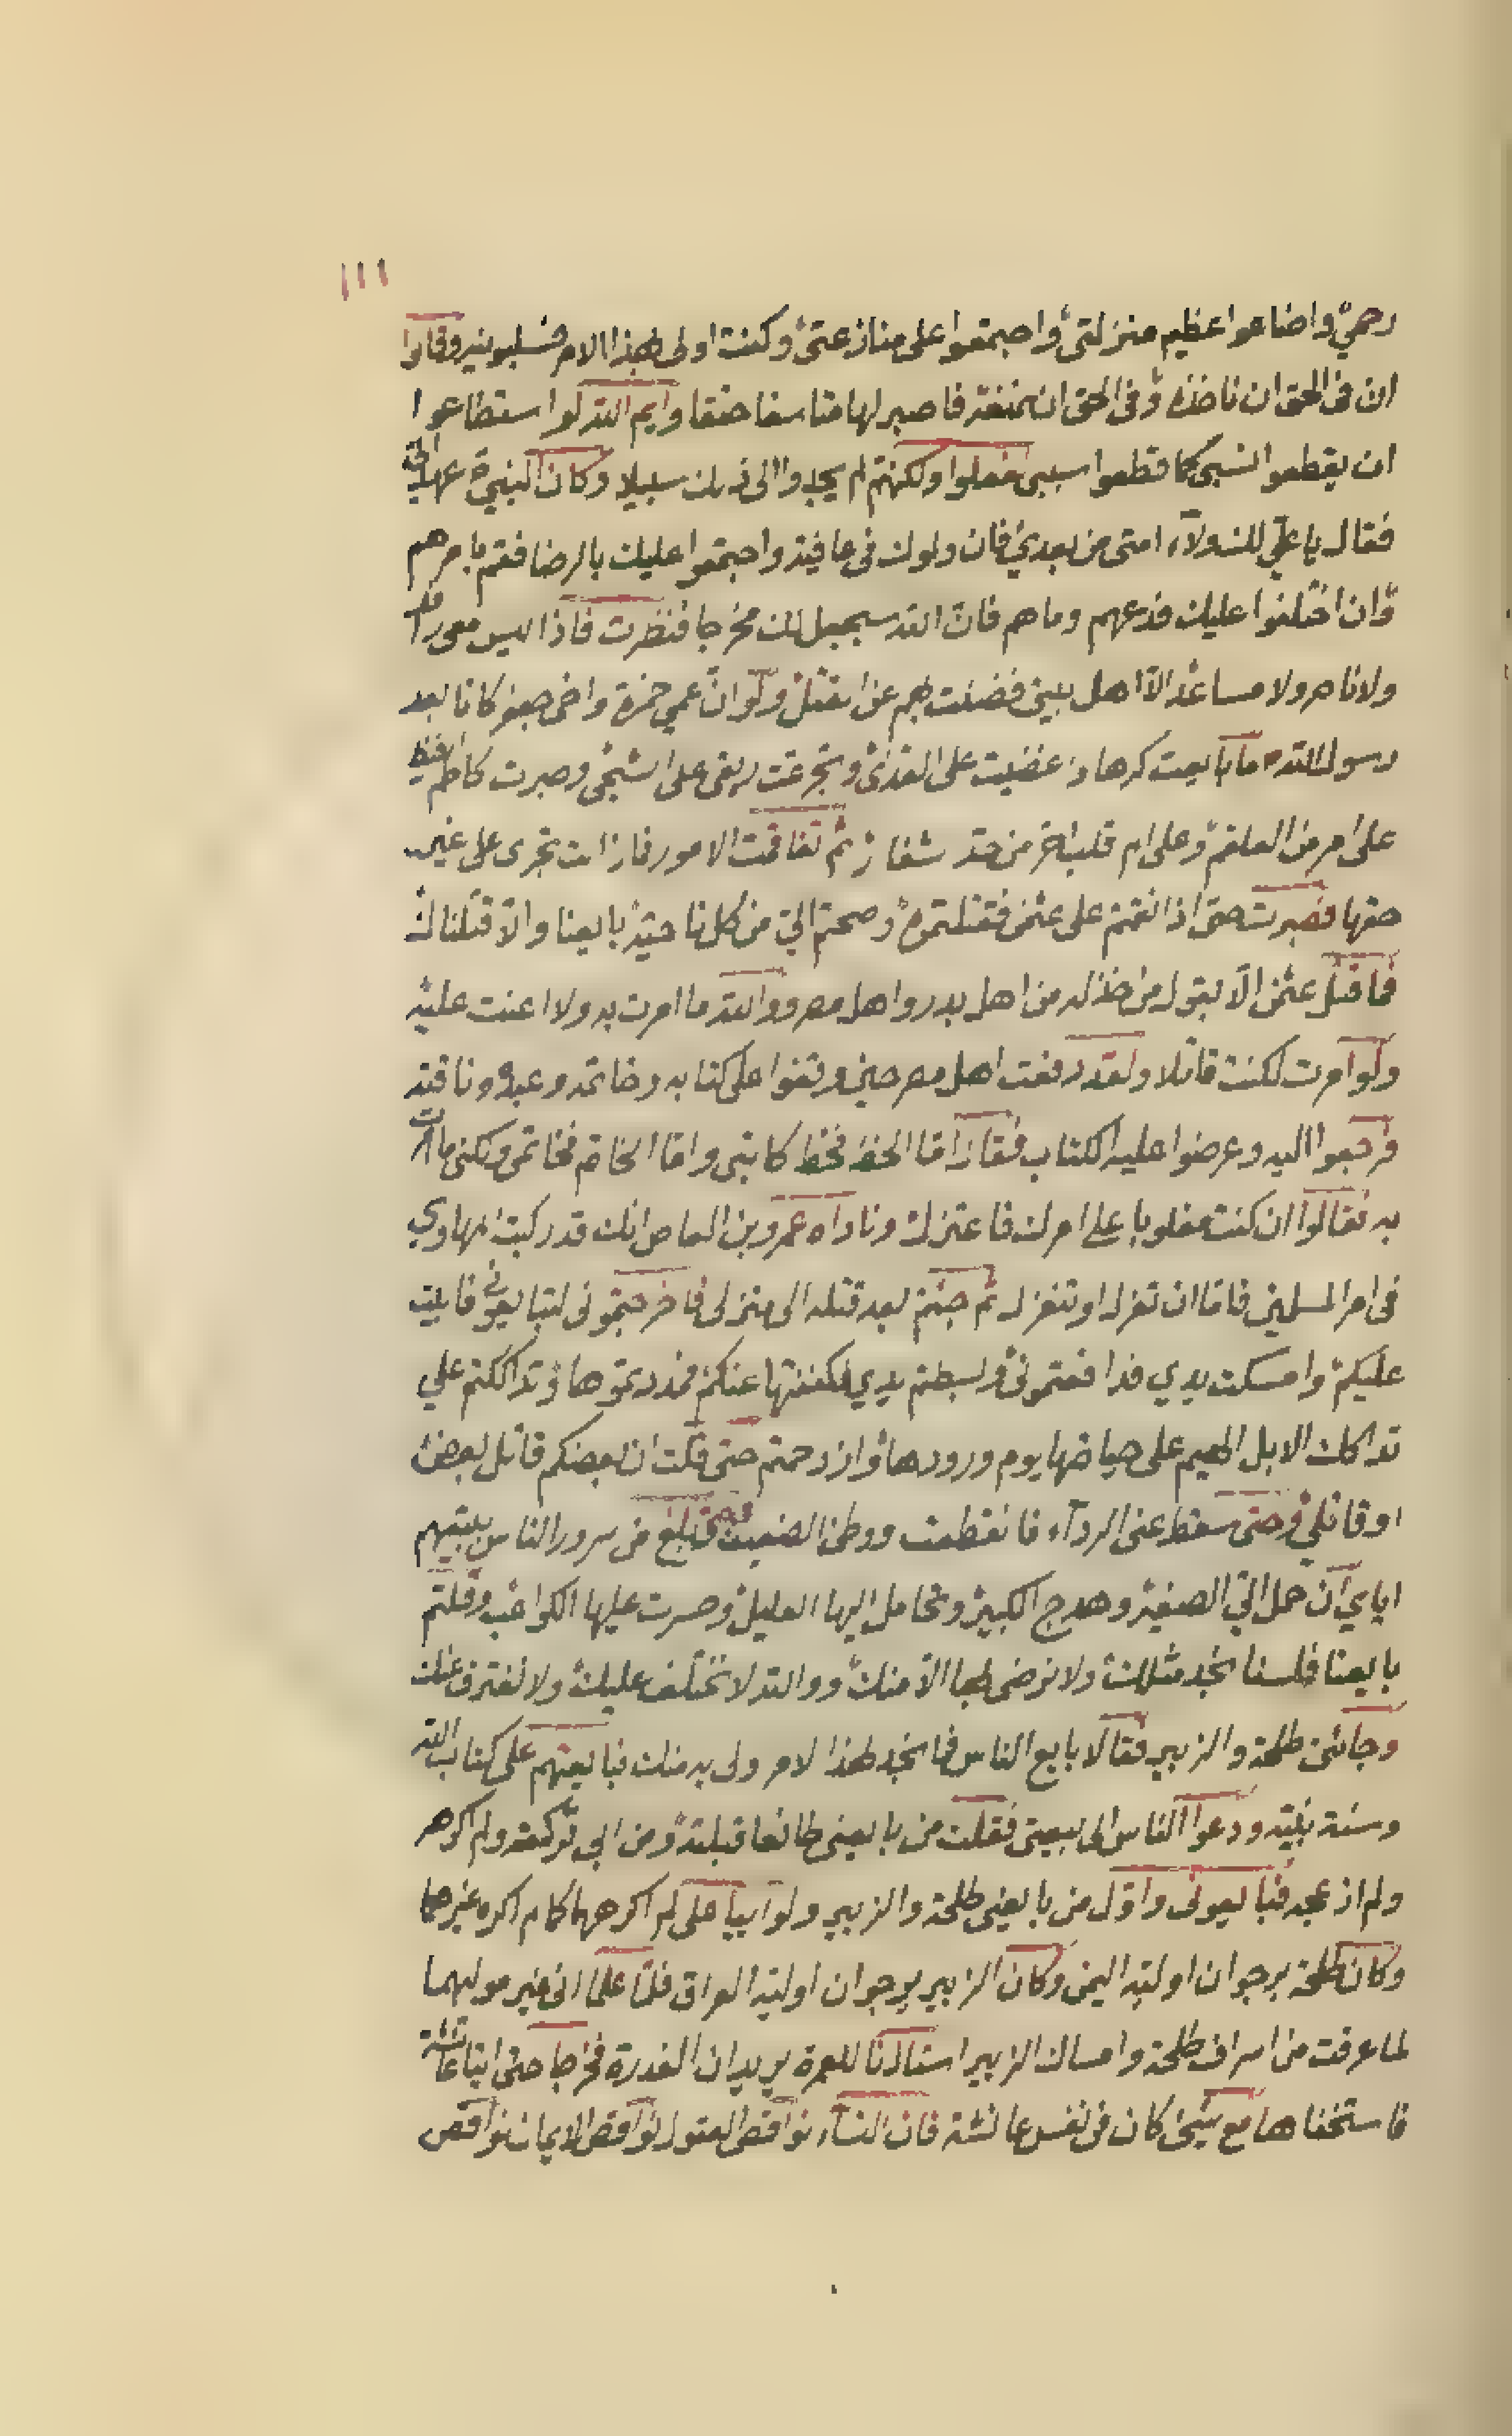 ١١١
رحمي واضاعوا عظيم منزلتي واجتمعوا على منازعتي وكنت اولى بهذا الامر فسلبونيه وقالوا
ان في الحق ان ناخذه وفي الحق ان تمنعه فاصبر لها متاسفا حنقا وايم الله لو استطاعوا
ان يقطعوا نسبي كما قطعوا سببي فعلوا ولكنهم لم يجدوا الى ذلك سبيلا وكان النبي عهد الي
فقال يا علي لك ولاء امتي من بعدي فان ولوك في عافية واجتمعوا عليك بالرضا فقم بامرهم
وان اختلفوا عليك فدعهم وما هم فان الله سيجعل لك مخرجا فنظرت فاذا ليس معي رافد
ولا ناصر ولا مساعد الا اهل بيتي فضننت بهم عن القتل ولو ان عمي حمزة واخي جعفر كانا بعد
رسول الله ما بايعت كرها فاغضيت على القذى وتجرعت ريقي على الشجى وصبرت كاظم الغيظ
على امر من العلقم وعلى الم قلب احز من حد شفار ثم تفاقمت الامور فما زالت تجرى على غير
حقها فصبرت حتى اذا نقمتم على عثمن فقتلتموه وصحتم الي من كل ناحية بايعنا والا قتلناك
فما قتل عثمن الا بقول من خذله من اهل بدر واهل مصر ووالله ما امرت به ولا اعنت عليه
ولو امرت لكنت قاتلا ولقد دفعت اهل مصر حين وقفوا على كتابه وخاتمه وعبده وناقته
فرجعوا اليه وعرضوا عليه الكتاب فقال اما الخط فخط كاتبي واما الخاتم فخاتمي ولكني ما امرت
به فقالوا ان كنت مغلوبا على امرك فاعتزل وناداه عمرو بن العاص انك قد ركبت المهاوي
في امر المسلمين فاما ان تعزل او تنعزل ثم جئتم بعد قتله الى منزلي فاخرجتموني لتبايعوني فابيت
عليكم وامسكت يدي فدافعتموني وبسطتم يدي فكففتها عنكم فمددتموها وتداككتم علي
تداكك الابل الهيم على حياضها يوم ورودها وازدحمتم حتى قلت ان بعضكم قاتل بعض
او قاتلي وحتى سقط عني الرداء فانقطعت ووطئ الضعيف فبلغ من سرور الناس ببيعتهم
اياي ان حمل الي الصغير وهدج الكبير وتحامل اليها العليل وحسرت عليها الكواعب وقلتم
بايعنا فلسنا نجد مثلك ولا نرضى لها الا منك ووالله لا نختلف عليك ولا نفترق عنك
وجائني طلحة والزبير فقالا بايع الناس فما نجد لهذا الامر ولي به منك فبايعتهم على كتاب الله
وسنة نبيه ودعوا الناس الى بيعتي فقلت من بايعني طائعا قبلته ومن ابى تركته ولم اكره
ولم ازعجه فبايعوني واول من بايعني طلحة والزبير ولو ابيا علي لم اكرههما كما لم اكره غيرهما
وكان طلحة يرجو ان اوليه اليمن وكان الزبير يرجو ان اوليه العراق فلما علما اني غير موليهما
لما عرفت من اسراف طلحة وامساك الزبير استاذنا للعمرة يريدان الغدرة فخرجا حتى اتيا عائشة
فاستخفاها مع شيئ كان في نفس عائشة فان النساء نواقص العقول نواقص الايمان نواقص